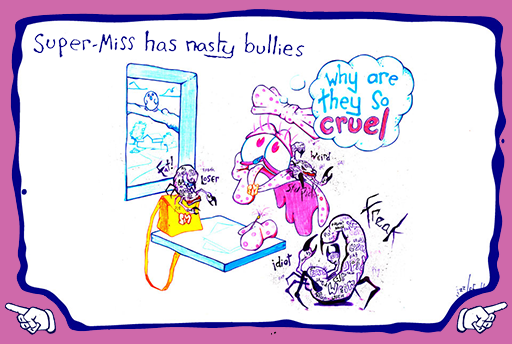 Super-Miss has nasty bullies
Why are
they so
cruel
Fat!
Loser
Weird
Stupid
Freak
idiot